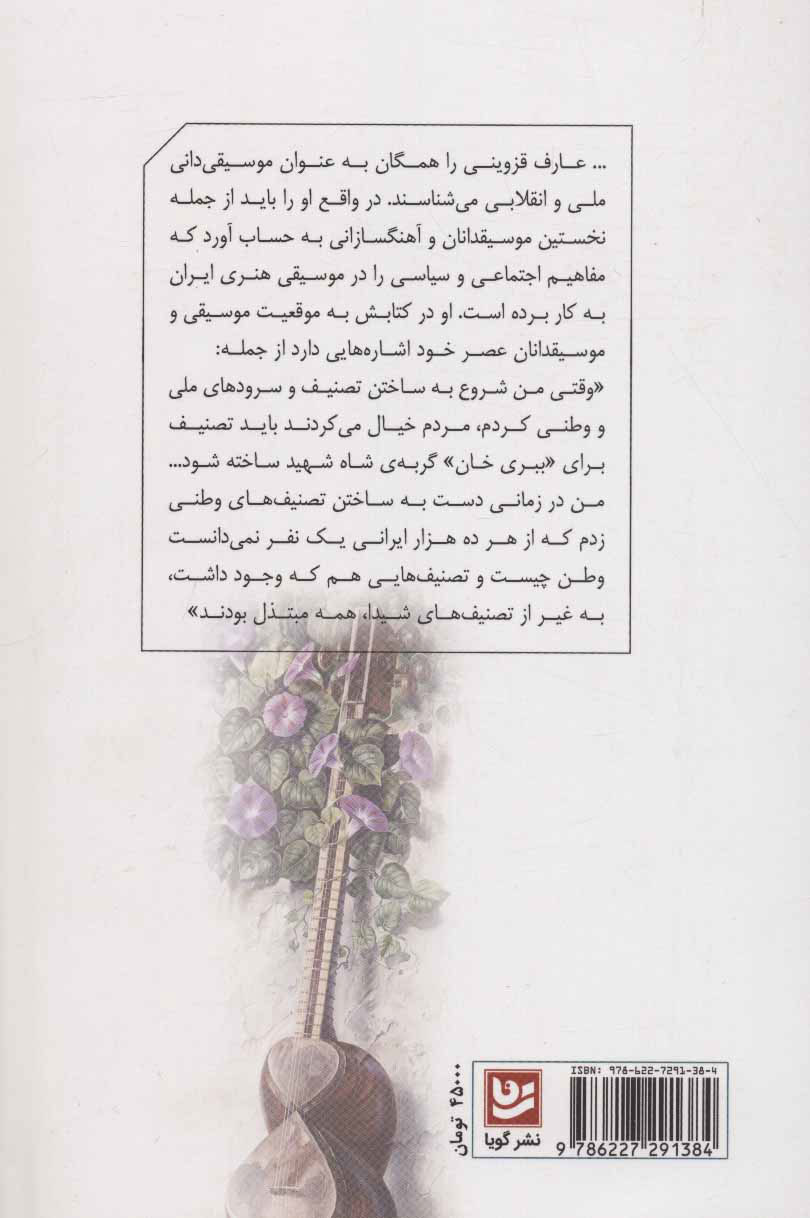 ... عارف قزوینی را همگان به عنوان موسیقی‌دانی
ملی و انقلابی می‌شناسند. در واقع او را باید از جمله
نخستین موسیقدانان و آهنگسازانی به حساب آورد که
مفاهیم اجتماعی و سیاسی را در موسیقی هنری ایران
به کار برده است. او در کتابش به موقعیت موسیقی و
موسیقدانان عصر خود اشاره‌هایی دارد از جمله:
«وقتی من شروع به ساختن تصنیف و سرودهای ملی
و وطنی کردم، مردم خیال می‌کردند باید تصنیف
برای «ببری خان» گربه‌ی شاه شهید ساخته شود...
من در زمانی دست به ساختن تصنیف‌های وطنی
زدم که از هر ده هزار ایرانی یک نفر نمی‌دانست
وطن چیست و تصنیف‌هایی هم که وجود داشت،
به غیر از تصنیف‌های شیدا، همه مبتذل بودند»
۴۵۰۰۰ تومان
نشر گویا
ISBN: 978-622-7291-38-4
9 786227 291384